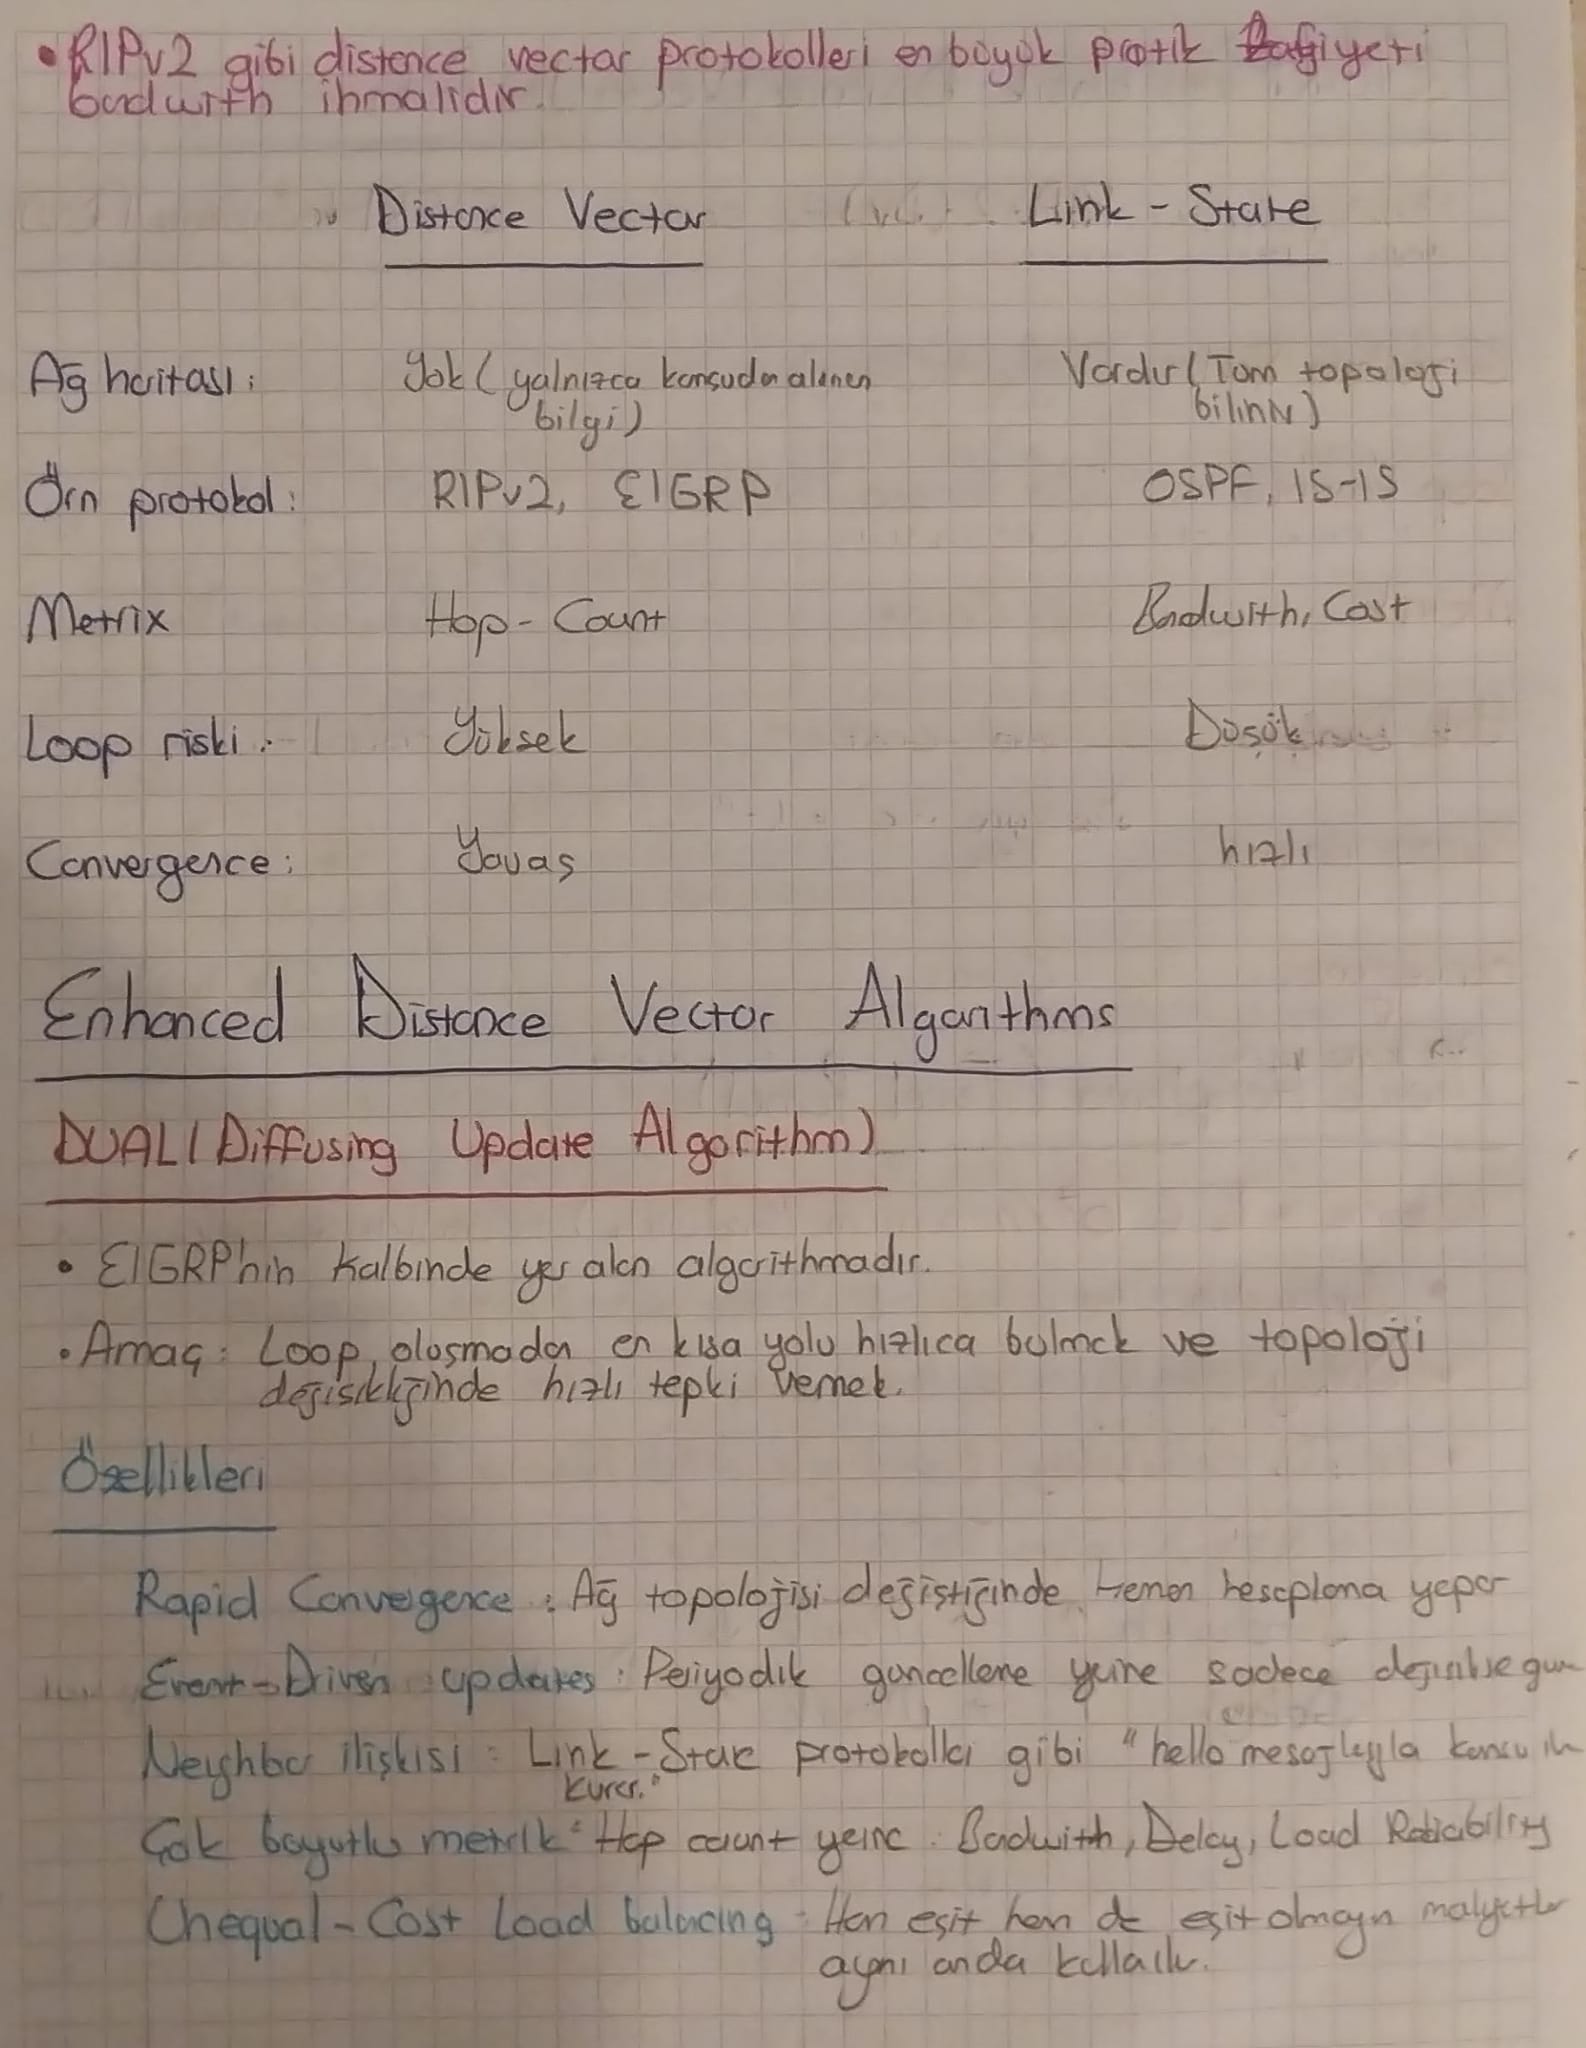 • RIPv2 gibi distance vector protokolleri en büyük pratik
badwith ihmalidir.
Distance Vector Link - State
Ağ haritası: Yok (yalnızca komşudan alınan Vardır (Tüm topoloji
bilgi) bilinir)
Örn protokol: RIPv2, EIGRP OSPF, IS-IS
Metrix Hop - Count Badwith, Cost
Loop riski: Yüksek Düşük
Convergence: Yavaş hızlı
Enhanced Distance Vector Algorithms
DUAL (Diffusing Update Algorithm)
• EIGRP'nin kalbinde yer alan algorithmadır.
• Amaç: Loop oluşmadan en kısa yolu hızlıca bulmak ve topoloji
değişikliğinde hızlı tepki vemek.
Özellikleri
Rapid Convergence: Ağ topolojisi değiştiğinde hemen hesaplama yapar
Event-Driven updates: Periyodik güncelleme yerine sadece
Neighbor ilişkisi: Link - State protokolleri gibi "hello mesajlarıyla
kurar."
Çok boyutlu metrik: Hop count yerine Badwith, Delay, Load
Unequal-Cost Load balancing: Hem eşit hem de eşit olmayan
aynı anda